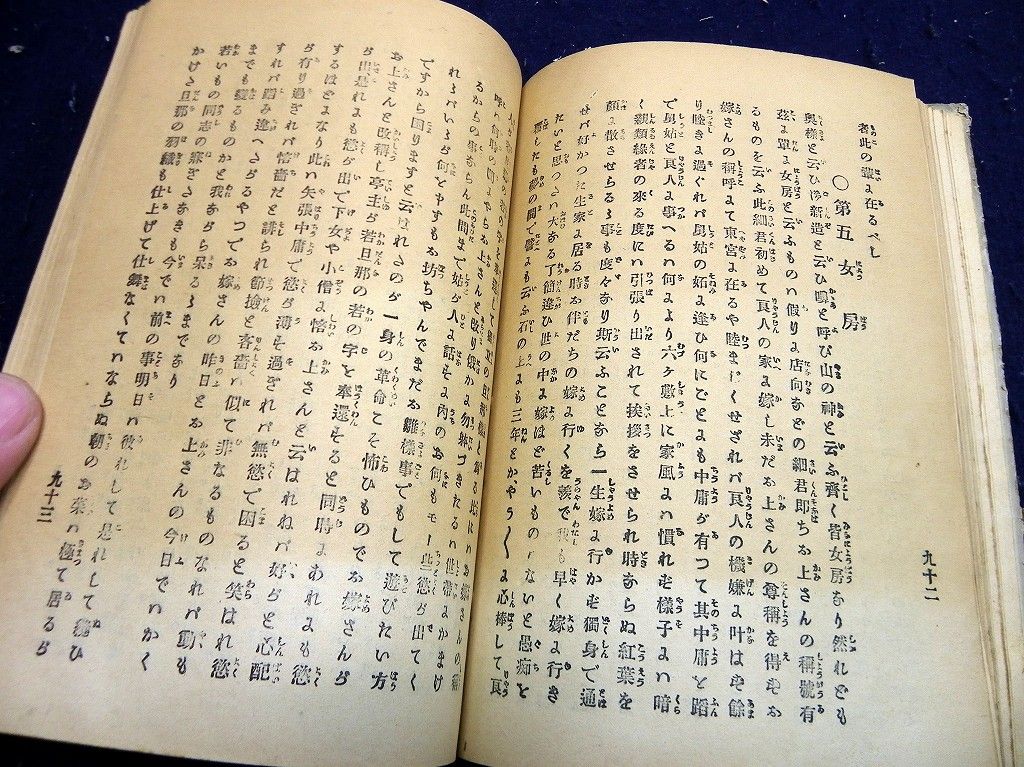 者此の輩に在るべし
○第五 女房
奥様と云ひ御新造と云ひ嚊と呼び山の神と云ふ齊しく皆女房なり然れども
茲に單に女房と云ふものハ假りに店向などの細君即ちお上さんの稱號有
るものを云ふ此細君初めて良人の家に嫁し未だお上さんの尊稱を得ずお
嫁さんの稱呼にて東宮に在るや睦ましくせざれバ良人の機嫌に叶はず餘
り睦き過ぐれバ舅姑の妬に逢ひ何にごとにも中庸が有つて其中庸を蹈
で舅姑と良人に事へるハ何より六ケ敷上に家風にハ慣れず樣子にハ暗
く親類緣者の來る度に引張り出されて挨拶をさせられ時ならぬ紅葉を
顏に散させらるゝ事も度々なり斯云ふことなら一生嫁に行かず獨身で通
せバ好かつた生家に居る時お伴だちの嫁に行くを羨で我も早く嫁に行き
たいと思つたハ大きな了簡違ひ世の中に嫁ほど苦いものハないと愚痴を
溢したも
の間で
も云ふ石の上にも三年とかやう〳〵に心棒して良
るからの事ならん此間まで姑が人に話すにも内の何もモー些慾が出てく
れゝバいゝが何をやすもお坊ちやんでまだお雛樣事でもして遊びたい方
ですから困りますと云はれたのが一身の革命こそ怖ひものでお嫁さんが
お上さんと改稱し亭主が若旦那の若の字を奉還すると同時にあれにも慾
が出是れにも慾が出で下女や小僧に悋お上さんと云はれねバ好がと心配
するほどになり此ハ矢張中庸で慾が薄す過ぎれバ無慾で困ると笑はれ慾
が有り過ぎれバ悋嗇だと誹られ節儉と吝嗇ハ似て非なるものなれバ動も
すれバ踏み違へたがるやつでお嫁さんの昨日とお上さんの今日でハかく
までも變るものかと我ながら呆るゝまであり
若いもの同志の寐ぎたなきも今でハ前の事明日ハ彼れして是れして
かけた旦那の羽織も仕上げて仕舞なくてハならぬ朝のお菜ハ極て居るが
九十二
九十三